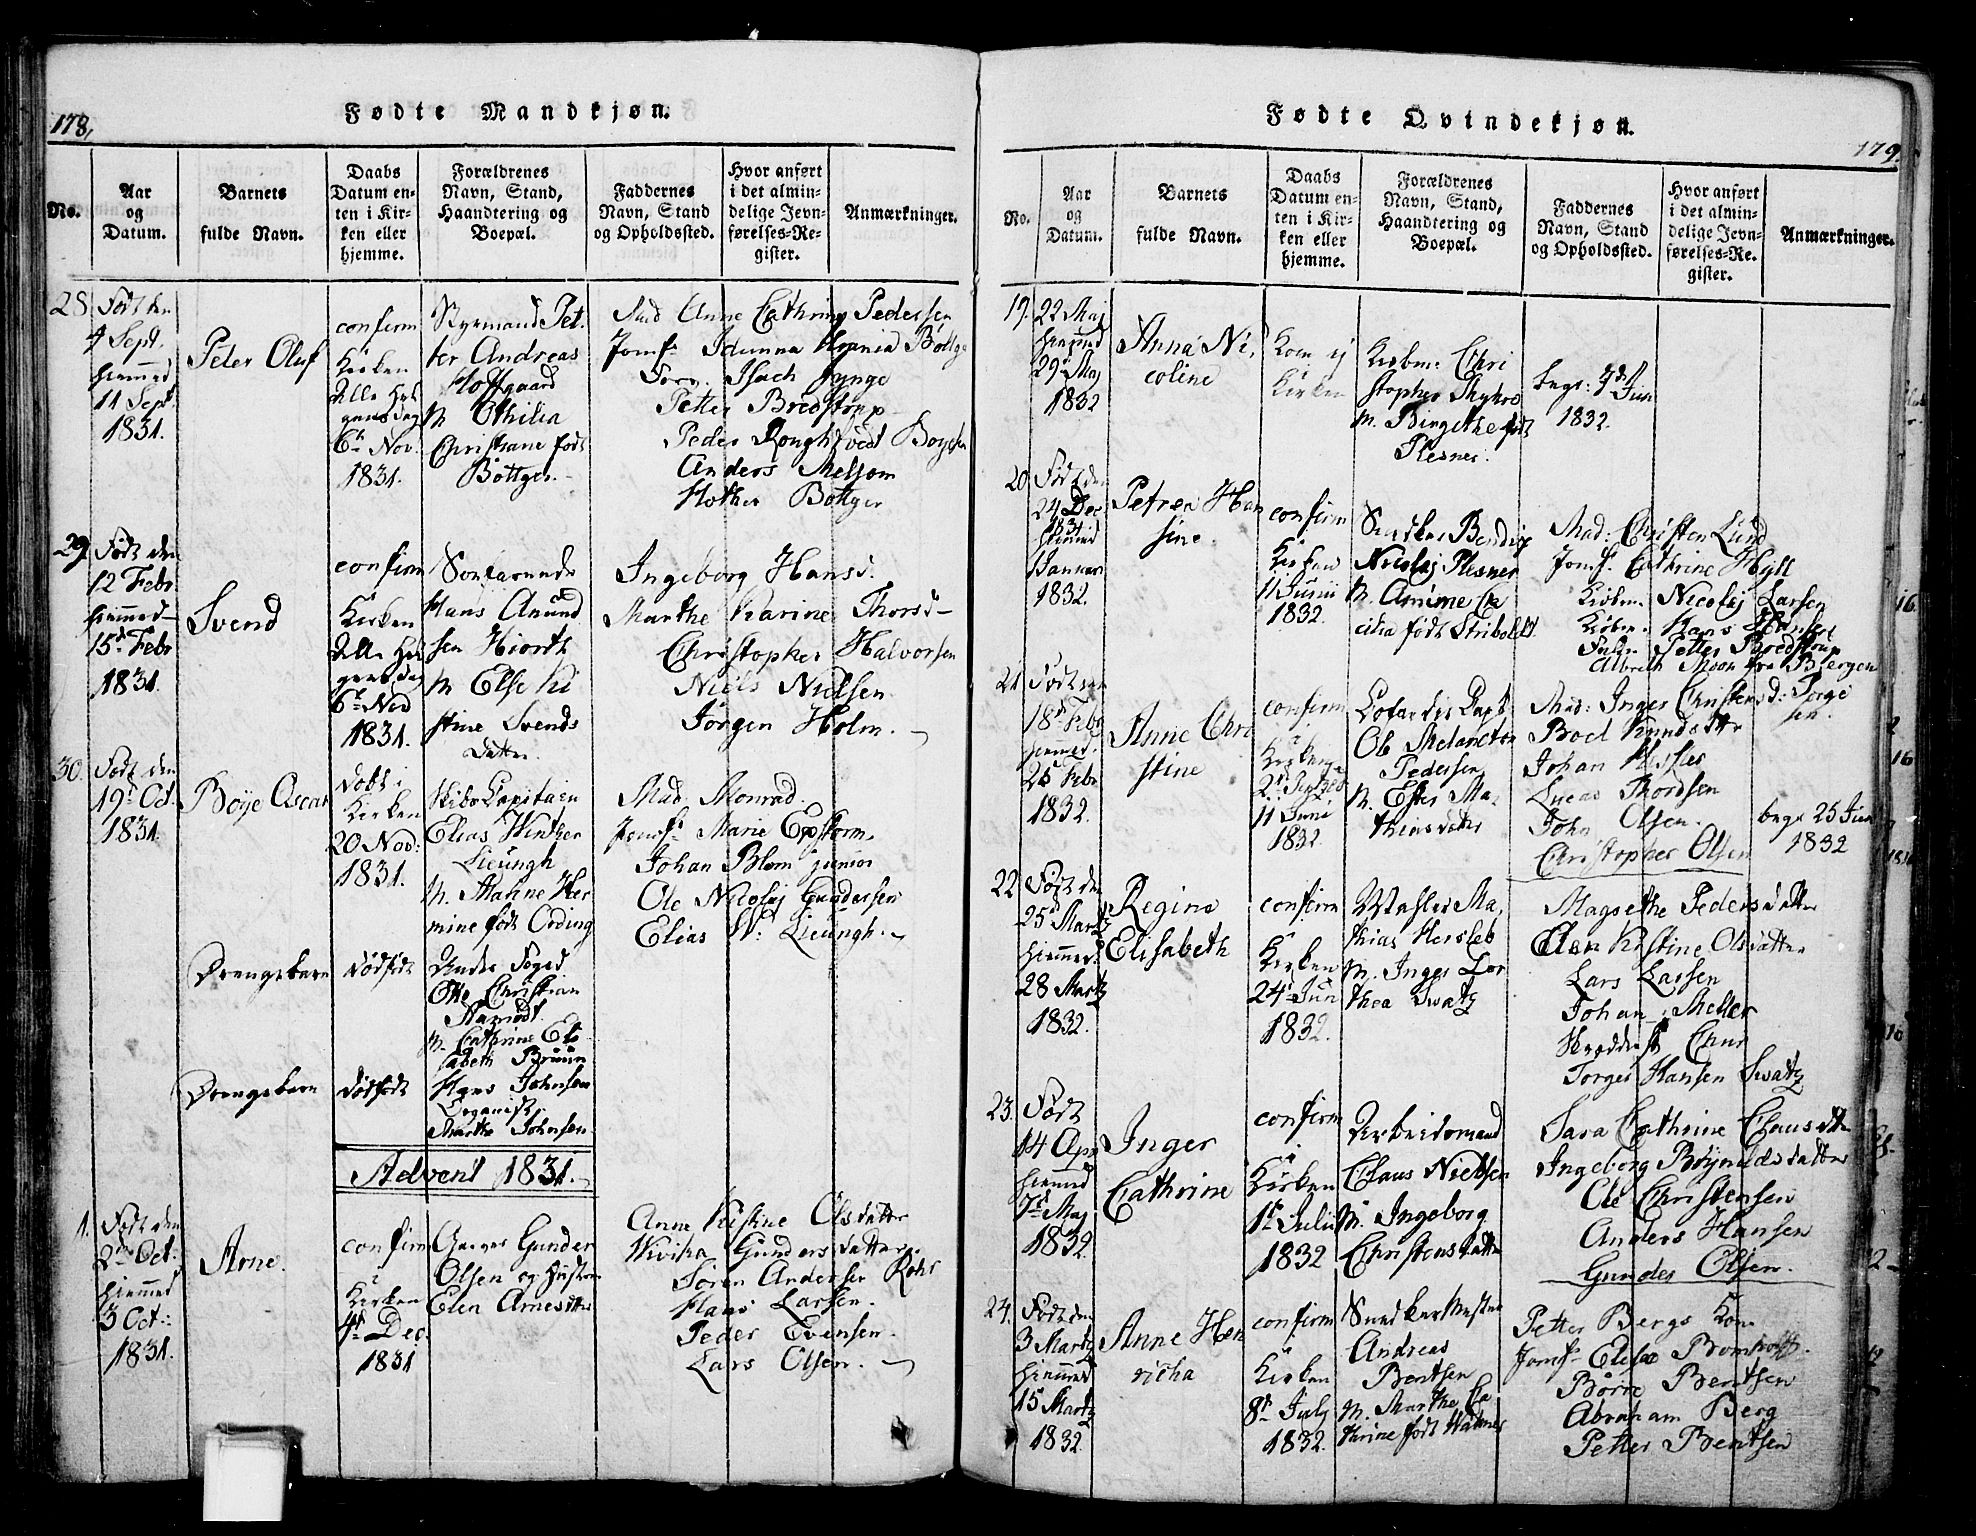 178,
Fødte Mandkjøn.
No.
Aar
og
Datum.
Barnets
fulde Navn.
Daabs
Datum en-
ten i Kir-
ken eller
hjemme.
Forældrenes
Navn, Stand,
Haandtering og
Boepæl.
Faddernes
Navn, Stand
og Opholdssted.
Hvor anført
i det almin-
delige Jevn-
førelses-Re-
gister.
Anmærkninger.
28
Født den
4 Sept.
hiemmed
11 Sept.
1831.
Peter Oluf
confirm
Kirken
Alle Hel
gens dag
6te Nov.
1831.
Styrmand Pet-
ter Andreas
Hoffgaard
M Othilia
Christiane født
Bøttger.
Mad Anne Cathrine Pedersen
Jomf: Idunna Urania Bøttger
Isach Jynge
Petter Bredstrup
Peder Rougtvedt Boysen
Anders Melsom
Hother Bøttger
29.
Født den
12 Febr
hiemmed
15d Febr
1831.
Svend
confirm
Kirken
Alle Hel
gens dag
6te Nov
1831.
Søefarende
Hans Anund
sen Hiorth
M Else Ki
stine Svends
datter.
Ingeborg Hansd.
Marthe Karine Thorsd
Christopher Halvorsen
Niels Nielsen
Jørgen Holm.
30.
Født den
19d Oct.
1831.
Bøye Oscar
Døbt i
Kirken
20 Nov:
1831.
Skibs Capitain
Elias Winther
Lieungh
M. Maline Her
mine født Ording
Mad. Monrad.
Jomf: Marie Epstorm
Johan Blom junior
Ole Nicolaj Gundersen
Elias W: Lieungh.
Drengebarn
Dødfødt
Under Foged
Otte Christian
M. Cathrine Eli
sabeth Bruun
Drengebarn
Dødfødt
Hans Johnsen
Organist,
Marthe Johnsen
Advent 1831.
1.
Født den
2den Oct:
hiemmed
3 Oct:
1831.
Arne.
confirm
Kirken
4d Dec.
1831
Gunder
Olsen og Hustru
Elen Arnesdtter
Anne Kistine Olsdatter
Wivika Gundersdatter
Søren Andersen Rohr
Hans Larsen.
Peder Evensen.
Lars Olsen.
Fødte Qvindekjøn.
179.
No.
Aar
og
Datum.
Barnets
fulde Navn.
Daabs
Datum en-
ten i Kir-
ken eller
hjemme.
Forældrenes
Navn, Stand,
Haandtering og
Boepæl.
Faddernes
Navn, Stand
og Opholdssted.
Hvor anført
i det almin-
delige Jevn-
førelses-Re-
gister.
Anmærkninger.
19.
22 Maj
hiemmed
29d Maj
1832
Anna Ni,
coline
Kom ej
Kirken
Kiøbm: Chri
stopher
M. Birgethe født
Plesner.
begr: 7d Jun
1832.
20
Født den
24 Dec
1831
hiemmed
Januar
1832.
Petrea Han
sine.
confirm
Kirken
11 Junii
1832.
Snedker Bendix
Nicolaj Plesner
M. Amime Ce
cilia født Stribolt
Mad: Christen Lund
Jomf. Cathrine Hyll
Kiøbm. Nicolaj Larsen
Kiøbm. Hans
Petter Bredstrup
Albreth Moon fra Bergen
21
Født den
18d Febr
hiemmed.
26 Febr
1832.
Anne Chri
stine
confirm
Kirken
11 Juni
1832.
Ole Melancton
Pedersen
M. Ester Ma,
thiasdatter
Mad: Inger Christensd: Torge
sen.
Boel Knudsdtter
Johan Kesler
Lucas Thordsen
John Olsen.
Christopher Olsen
begr: 25 Jun
1832
22
Født den
25d Martz
hiemmed
28 Martz
1832.
Regine
Elisabeth
confirm
Kirken
24d Jun
1832.
Mahler Ma,
thias Hersleb
M. Inger Dor
thea Swatz
Magrethe Pedersdatter
Elen Kistine Olsdatter
Lars Larsen
Johan Møller
Torger Hansen Swatz
23.
Født
14 Apr
hiemmed
7d Maj
1832.
Inger
Cathrine
confirm
i
Kirken
1d Julii
1832
Arbeidsmand
Claus Nielsen
M. Ingeborg
Christensdatter
Sara Cathrine Clausdtter
Ingeborg Brynildsdatter
Ole Christensen
Anders Hansen
Gunder Olsen.
24.
Født den
3 Martz
hiemmed
15 Martz
1832.
Anne Hen
richa
confirm
Kirken
8d July
1832.
Snedker Mester
Andreas
Bentsen
M. Marthe Ca
thrine født
Petter Bergs Kone
Jomf: Elise
Børre Bentsen
Abraham Berg
Petter Bentsen